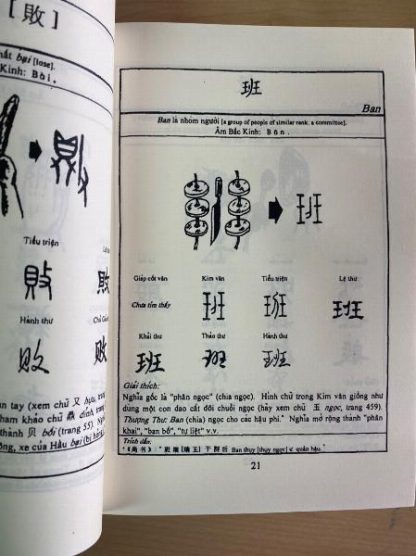 [敗]
bại (lose).
Kinh: Bài.
Tiểu triện
敗
敗
Hành thư
敗
敗
tay (xem chữ 又 hựu,
tham khảo chữ 鼎 đỉnh
thành 贝 bối (trang 55).
xe của Hầu bại
班
Ban
Ban là nhóm người (a group of people of similar rank, a committee).
Âm Bắc Kinh: Bān.
班
Giáp cốt văn Kim văn Tiểu triện Lệ thư
Chưa tìm thấy 班 班 班
Khải thư Thảo thư Hành thư
班 班 班
Giải thích:
Nghĩa gốc là "phân ngọc" (chia ngọc). Hình chữ trong Kim văn giống như
dùng một con dao cắt đôi chuỗi ngọc (hãy xem chữ 玉 ngọc, trang 459).
Thượng Thư: Ban (chia) ngọc cho các hậu phi." Nghĩa mở rộng thành "phân
khai", "ban bố", "tự liệt" v.v.
Trích dẫn:
21